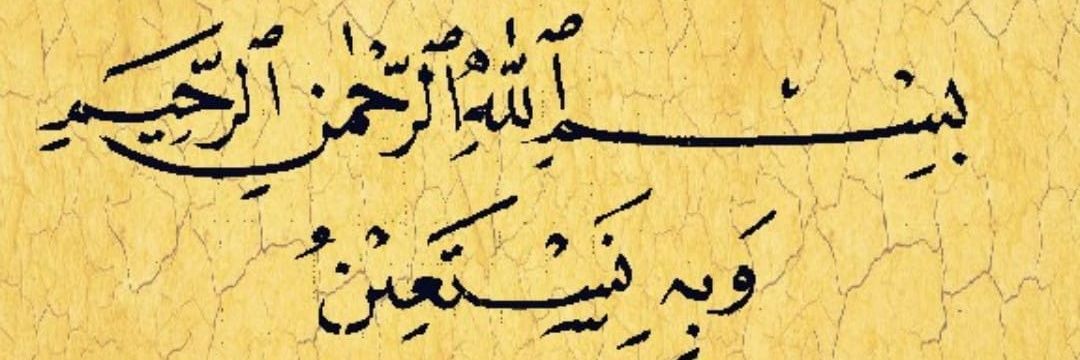 بِسْمِ ٱللّٰهِ ٱلرَّحْمٰنِ ٱلرَّحِيمِ
وَبِهِ نَسْتَعِيْنُ